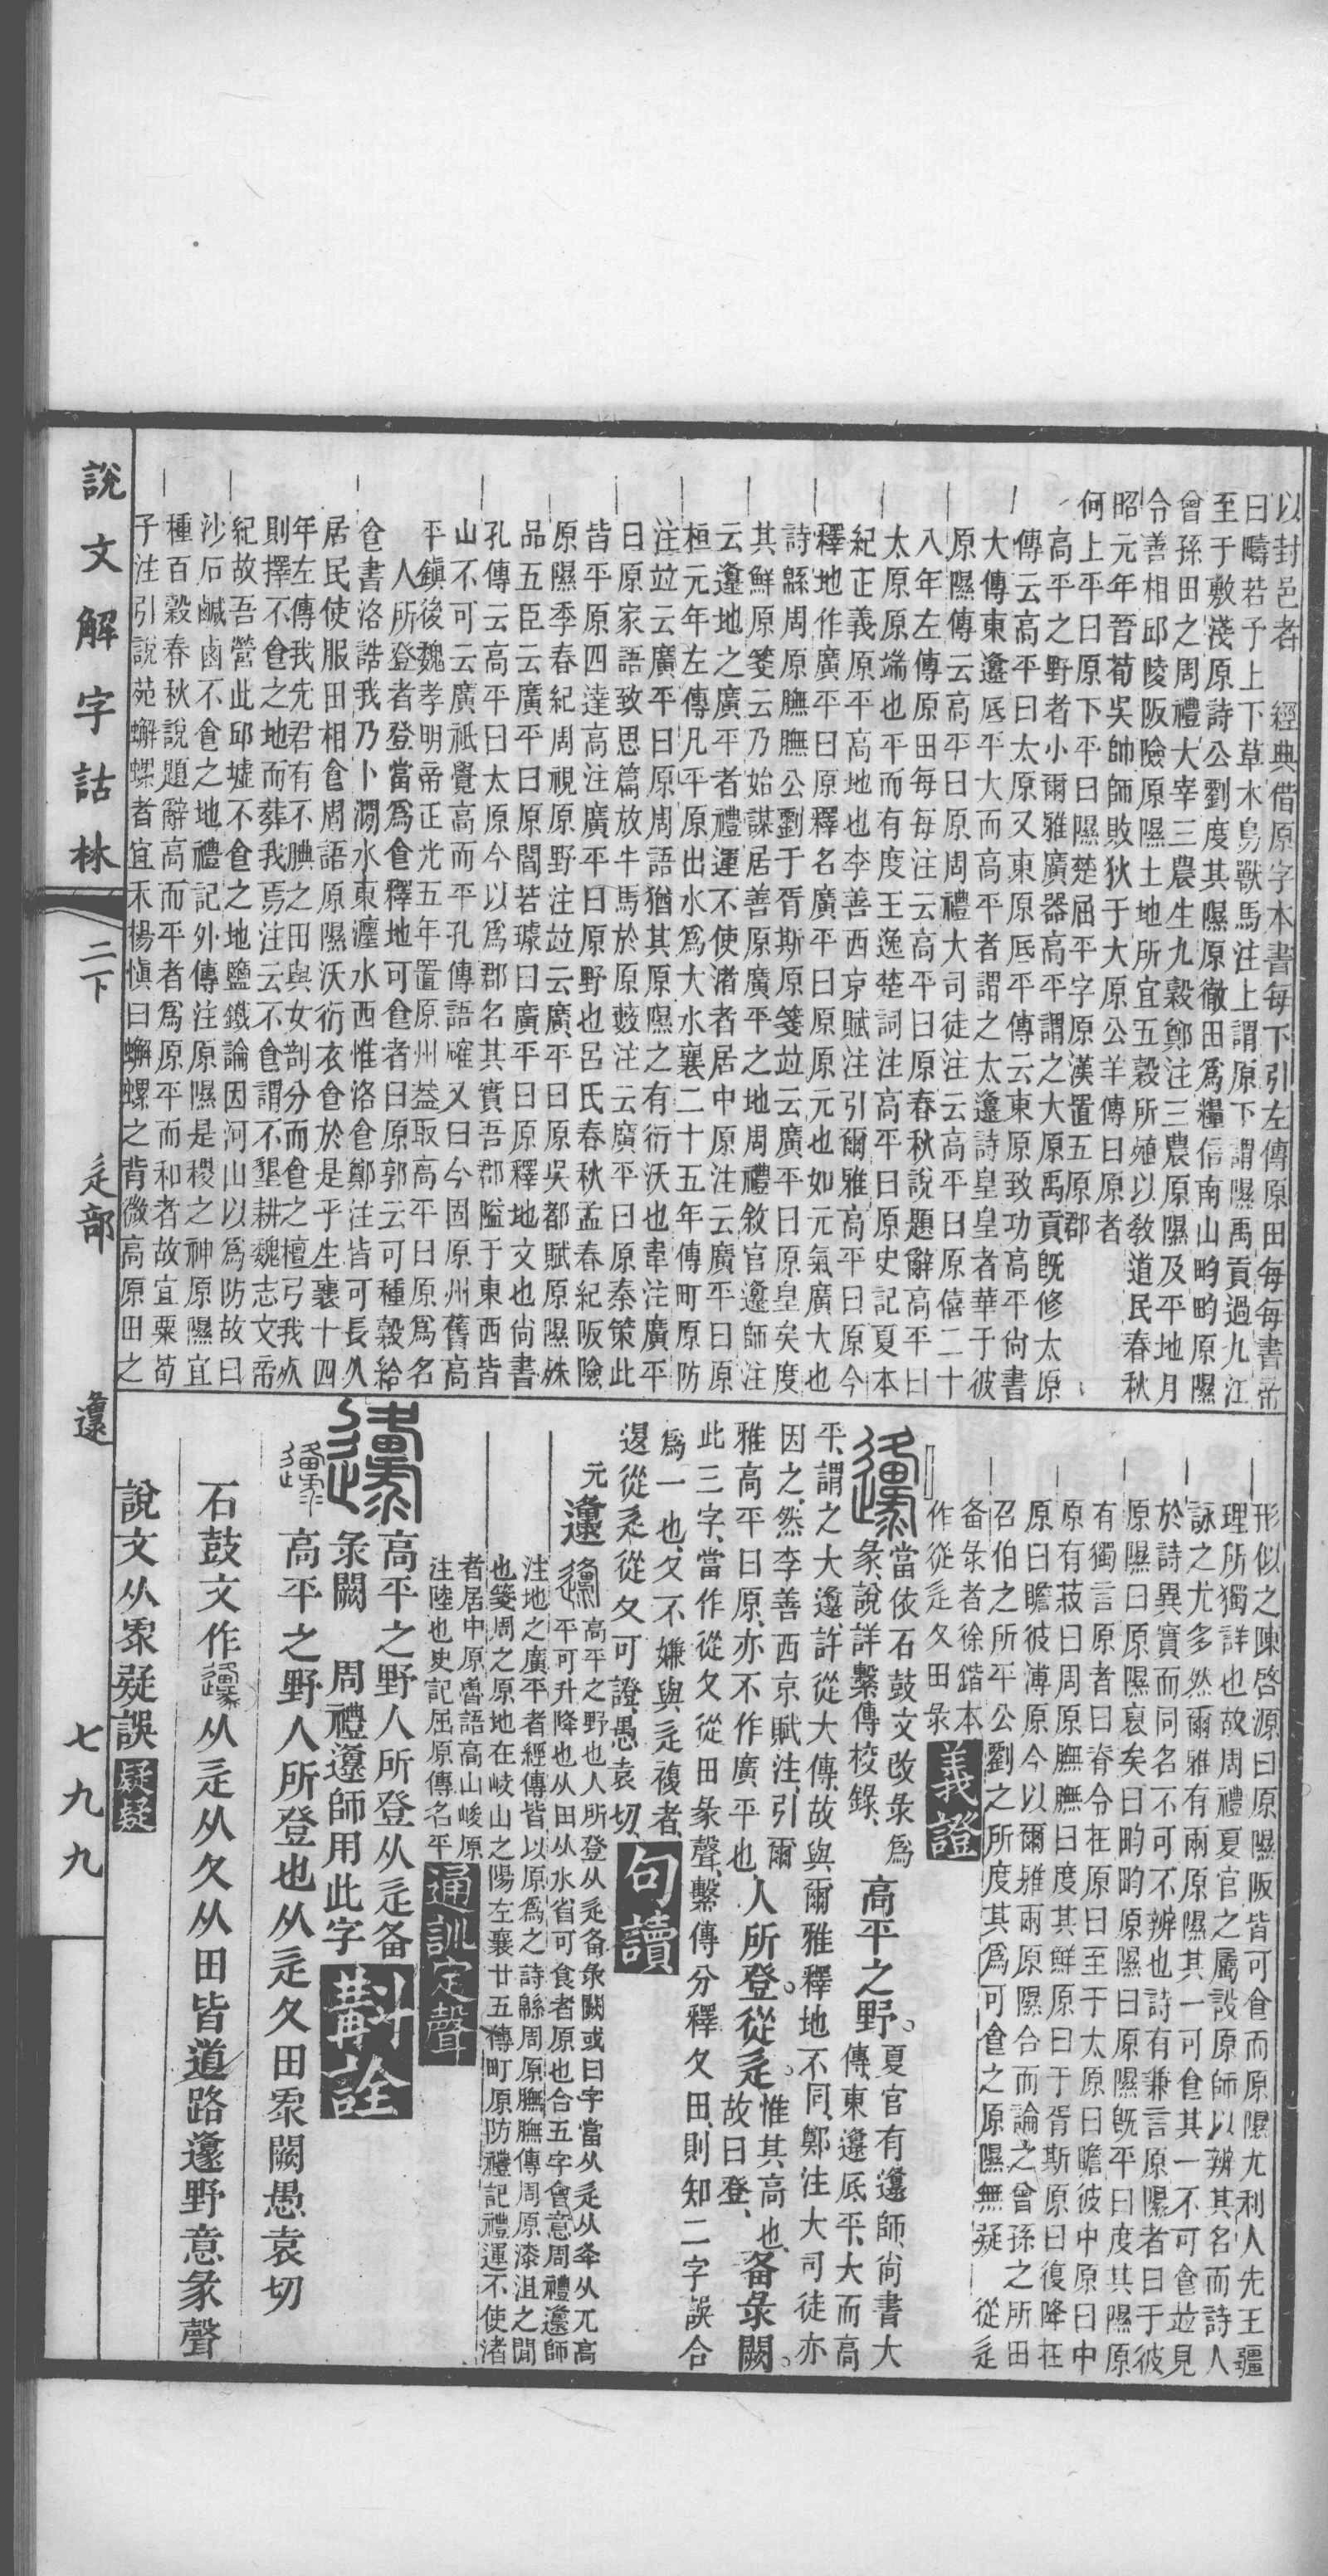 以封邑者　經典借原字本書每下引左傳原田每每書帝
曰疇若予上下草木鳥獸馬注上謂原下謂隰禹貢過九江
至于敷淺原詩公劉度其隰原徹田爲糧信南山畇畇原隰
曾孫田之周禮大宰三農生九穀鄭注三農原隰及平地月
令善相邱陵阪險原隰土地所宜五穀所殖以敎道民春秋
昭元年晉荀吳帥師敗狄于大原公羊傳曰原者
何上平曰原下平曰隰楚屈平字原漢置五原郡
高平之野者小爾雅廣器高平謂之大原禹貢旣修太原
傳云高平曰太原又東原底平傳云東原致功高平尚書
大傳東邍底平大而高平者謂之太邍詩皇皇者華于彼
原隰傳云高平曰原周禮大司徒注云高平曰原僖二十
八年左傳原田每每注云高平曰原春秋說題辭高平曰
太原原端也平而有度王逸楚詞注高平曰原史記夏本
紀正義原平高地也李善西京賦注引爾雅高平曰原今
釋地作廣平曰原釋名廣平曰原原元也如元氣廣大也
詩緜周原膴膴公劉于胥斯原箋竝云廣平曰原皇矣度
其鮮原箋云乃始謀居善原廣平之地周禮敘官邍師注
云邍地之廣平者禮運不使渚者居中原注云廣平曰原
桓元年左傳凡平原出水爲大水襄二十五年傳町原防
注竝云廣平曰原周語猶其原隰之有衍沃也韋注廣平
曰原家語致思篇放牛馬於原藪注云廣平曰原秦策此
皆平原四達高注廣平曰原野也呂氏春秋孟春紀阪險
原隰季春紀周視原野注竝云廣平曰原吳都賦原隰姝
品五臣云廣平曰原閻若璩曰廣平曰原釋地文也尙書
孔傳云高平曰太原今以爲郡名其實吾郡隘于東西皆
山不可云廣祇覺高而平孔傳語確又曰今固原州舊高
平鎮後魏孝明帝正光五年置原州葢取高平曰原爲名
人所登者登當爲食釋地可食者曰原郭云可種穀給
食書洛誥我乃卜澗水東瀍水西惟洛食鄭注皆可長久
居民使服田相食周語原隰沃衍衣食於是乎生襄十四
年左傳我先君有不腆之田與女剖分而食之檀弓我死
則擇不食之地而葬我焉注云不食謂不墾耕魏志文帝
紀故吾營此邱墟不食之地鹽鐵論因河山以爲防故曰
沙石鹹鹵不食之地禮記外傳注原隰是稷之神原隰宜
種百穀春秋說題辭高而平者爲原平而和者故宜粟荀
子注引說苑蠏螺者宜禾楊愼曰蠏螺之背微高原田之
形似之陳啓源曰原隰阪皆可食而原隰尤利人先王疆
理所獨詳也故周禮夏官之屬設原師以辨其名而詩人
詠之尤多然爾雅有兩原隰其一可食其一不可食竝見
於詩異實而同名不可不辨也詩有兼言原隰者曰于彼
原隰曰原隰裒矣曰畇畇原隰曰原隰旣平曰度其隰原
有獨言原者曰脊令在原曰至于太原曰瞻彼中原曰中
原有菽曰周原膴膴曰度其鮮原曰于胥斯原曰復降在
原曰瞻彼溥原今以爾雅兩原隰合而論之曾孫之所田
召伯之所平公劉之所度其爲可食之原隰無疑　從辵
备彔者徐鍇本
作從辵夂田彔
義證
當依石鼓文改彔爲
彖說詳繫傳校錄
高平之野夏官有邍師尙書大傳東邍底平大而高
平謂之大邍許從大傳故與爾雅釋地不同鄭注大司徒亦
因之然李善西京賦注引爾
雅高平曰原亦不作廣平也人所登從辵惟其高也故曰登备彔闕
此三字當作從夂從田彖聲繫傳分釋夂田則知二字誤合
爲一也夂不嫌與辵複者
邊從辵從夂可證愚袁切
句讀
元邍高平之野也人所登从辵备彔闕或曰字當从辵从夅从兀高
平可升降也从田从水省可食者原也合五字會意周禮邍師
注地之廣平者經傳皆以原爲之詩緜周原膴膴傳周原漆沮之閒
也箋周之原地在岐山之陽左襄廿五傳町原防禮記禮運不使渚
者居中原魯語高山峻原
注陸也史記屈原傳名平
通訓定聲
高平之野人所登从辵备
彔闕　周禮邍師用此字
斠詮
高平之野人所登也从辵夂田彖闕愚袁切
石鼓文作从辵从夂从田皆道路邍野意彖聲
說文从彖疑誤疑疑
說文解字詁林　二下　辵部　邍　七九九